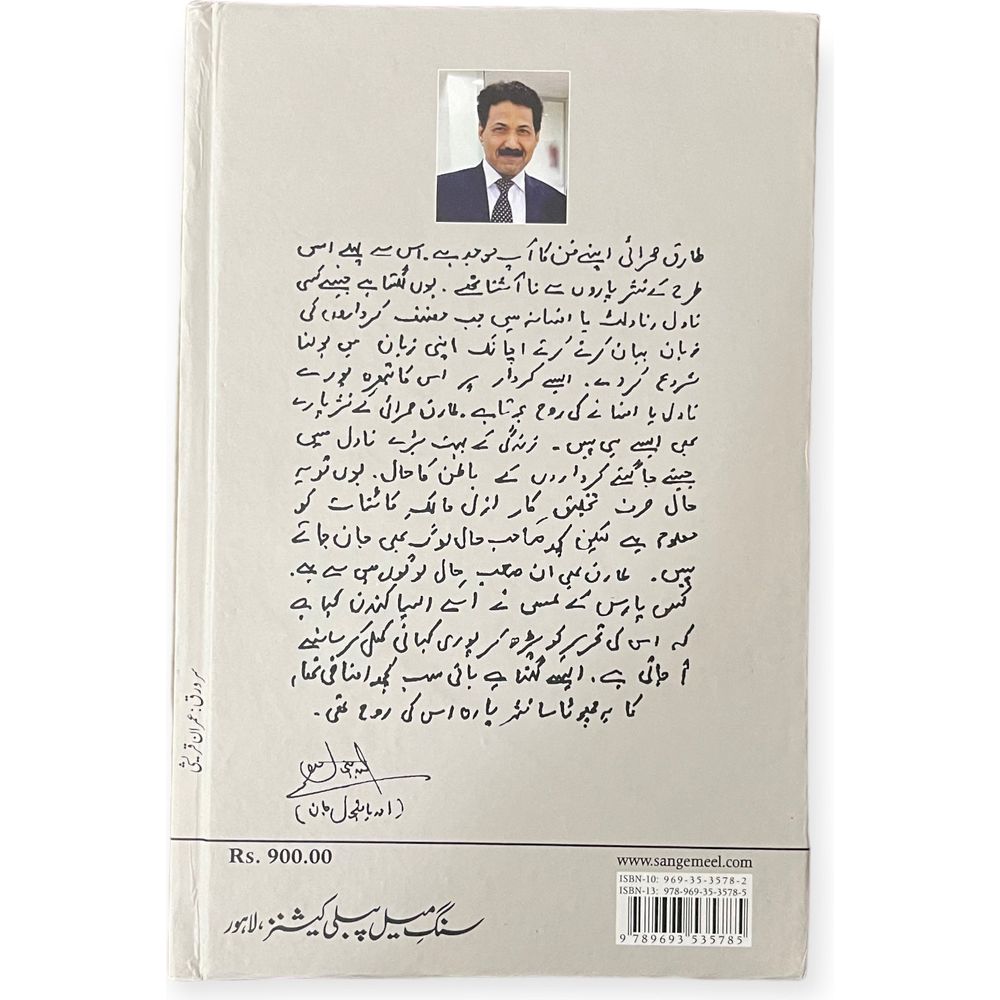 طارق صحرائی اپنے فن کا آپ موجد ہے۔ اس سے پہلے اسی
طرح کے نثر پاروں سے نا آشنا تھے۔ یوں لگتا ہے جیسے کسی
ناول، ناولٹ یا افسانہ میں جب مصنف کرداروں کی
زبان بیان کرتے کرتے اچانک اپنی زبان میں بولنا
شروع کر دے۔ ایسے کردار پر اس کا تبصرہ پورے
ناول یا افسانے کی روح ہوتا ہے۔ طارق صحرائی کے نثر پارے
بھی ایسے ہی ہیں۔ زندگی کے بہت بڑے ناول میں
جیتے جاگتے کرداروں کے باطن کا حال۔ یوں تو یہ
حال صرف تخلیق کار ازل مالکِ کائنات کو
معلوم ہے لیکن کچھ صاحب حال لوگ بھی جان جاتے
ہیں۔ طارق بھی ان صاحب حال لوگوں میں سے ہے۔
کسی پارس کے لمس نے اسے ایسا کندن کیا ہے
کہ اس کی تحریر کو پڑھ کر پوری کہانی کھل کر سامنے
آ جاتی ہے۔ ایسے لگتا ہے باقی سب کچھ اضافی تھا۔
کا یہ چھوٹا سا نثر پارہ اس کی روح تھی۔
(اوریا مقبول جان)
سرورق: عمران قریشی
Rs. 900.00
www.sangemeel.com
ISBN-10: 969-35-3578-2
ISBN-13: 978-969-35-3578-5
9 789693 535785
سنگِ میل پبلی کیشنز، لاہور